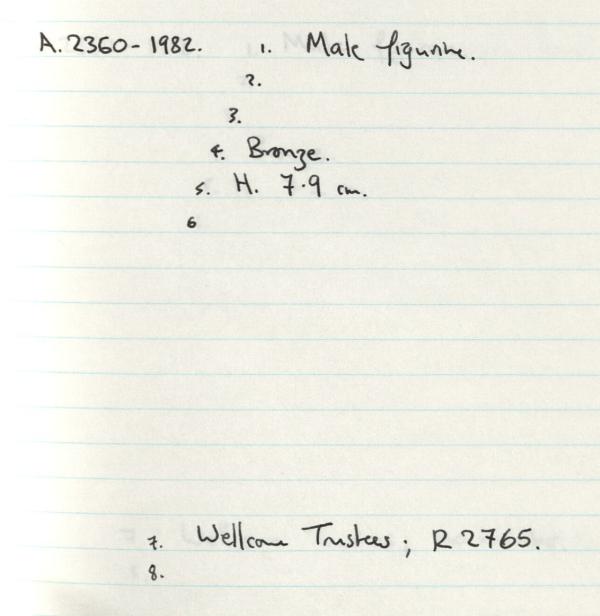 A. 2360-1982. 1. Male figurine.
2.
3.
4. Bronze.
5. H. 7.9 cm.
6
7. Wellcome Trustees; R 2765.
8.